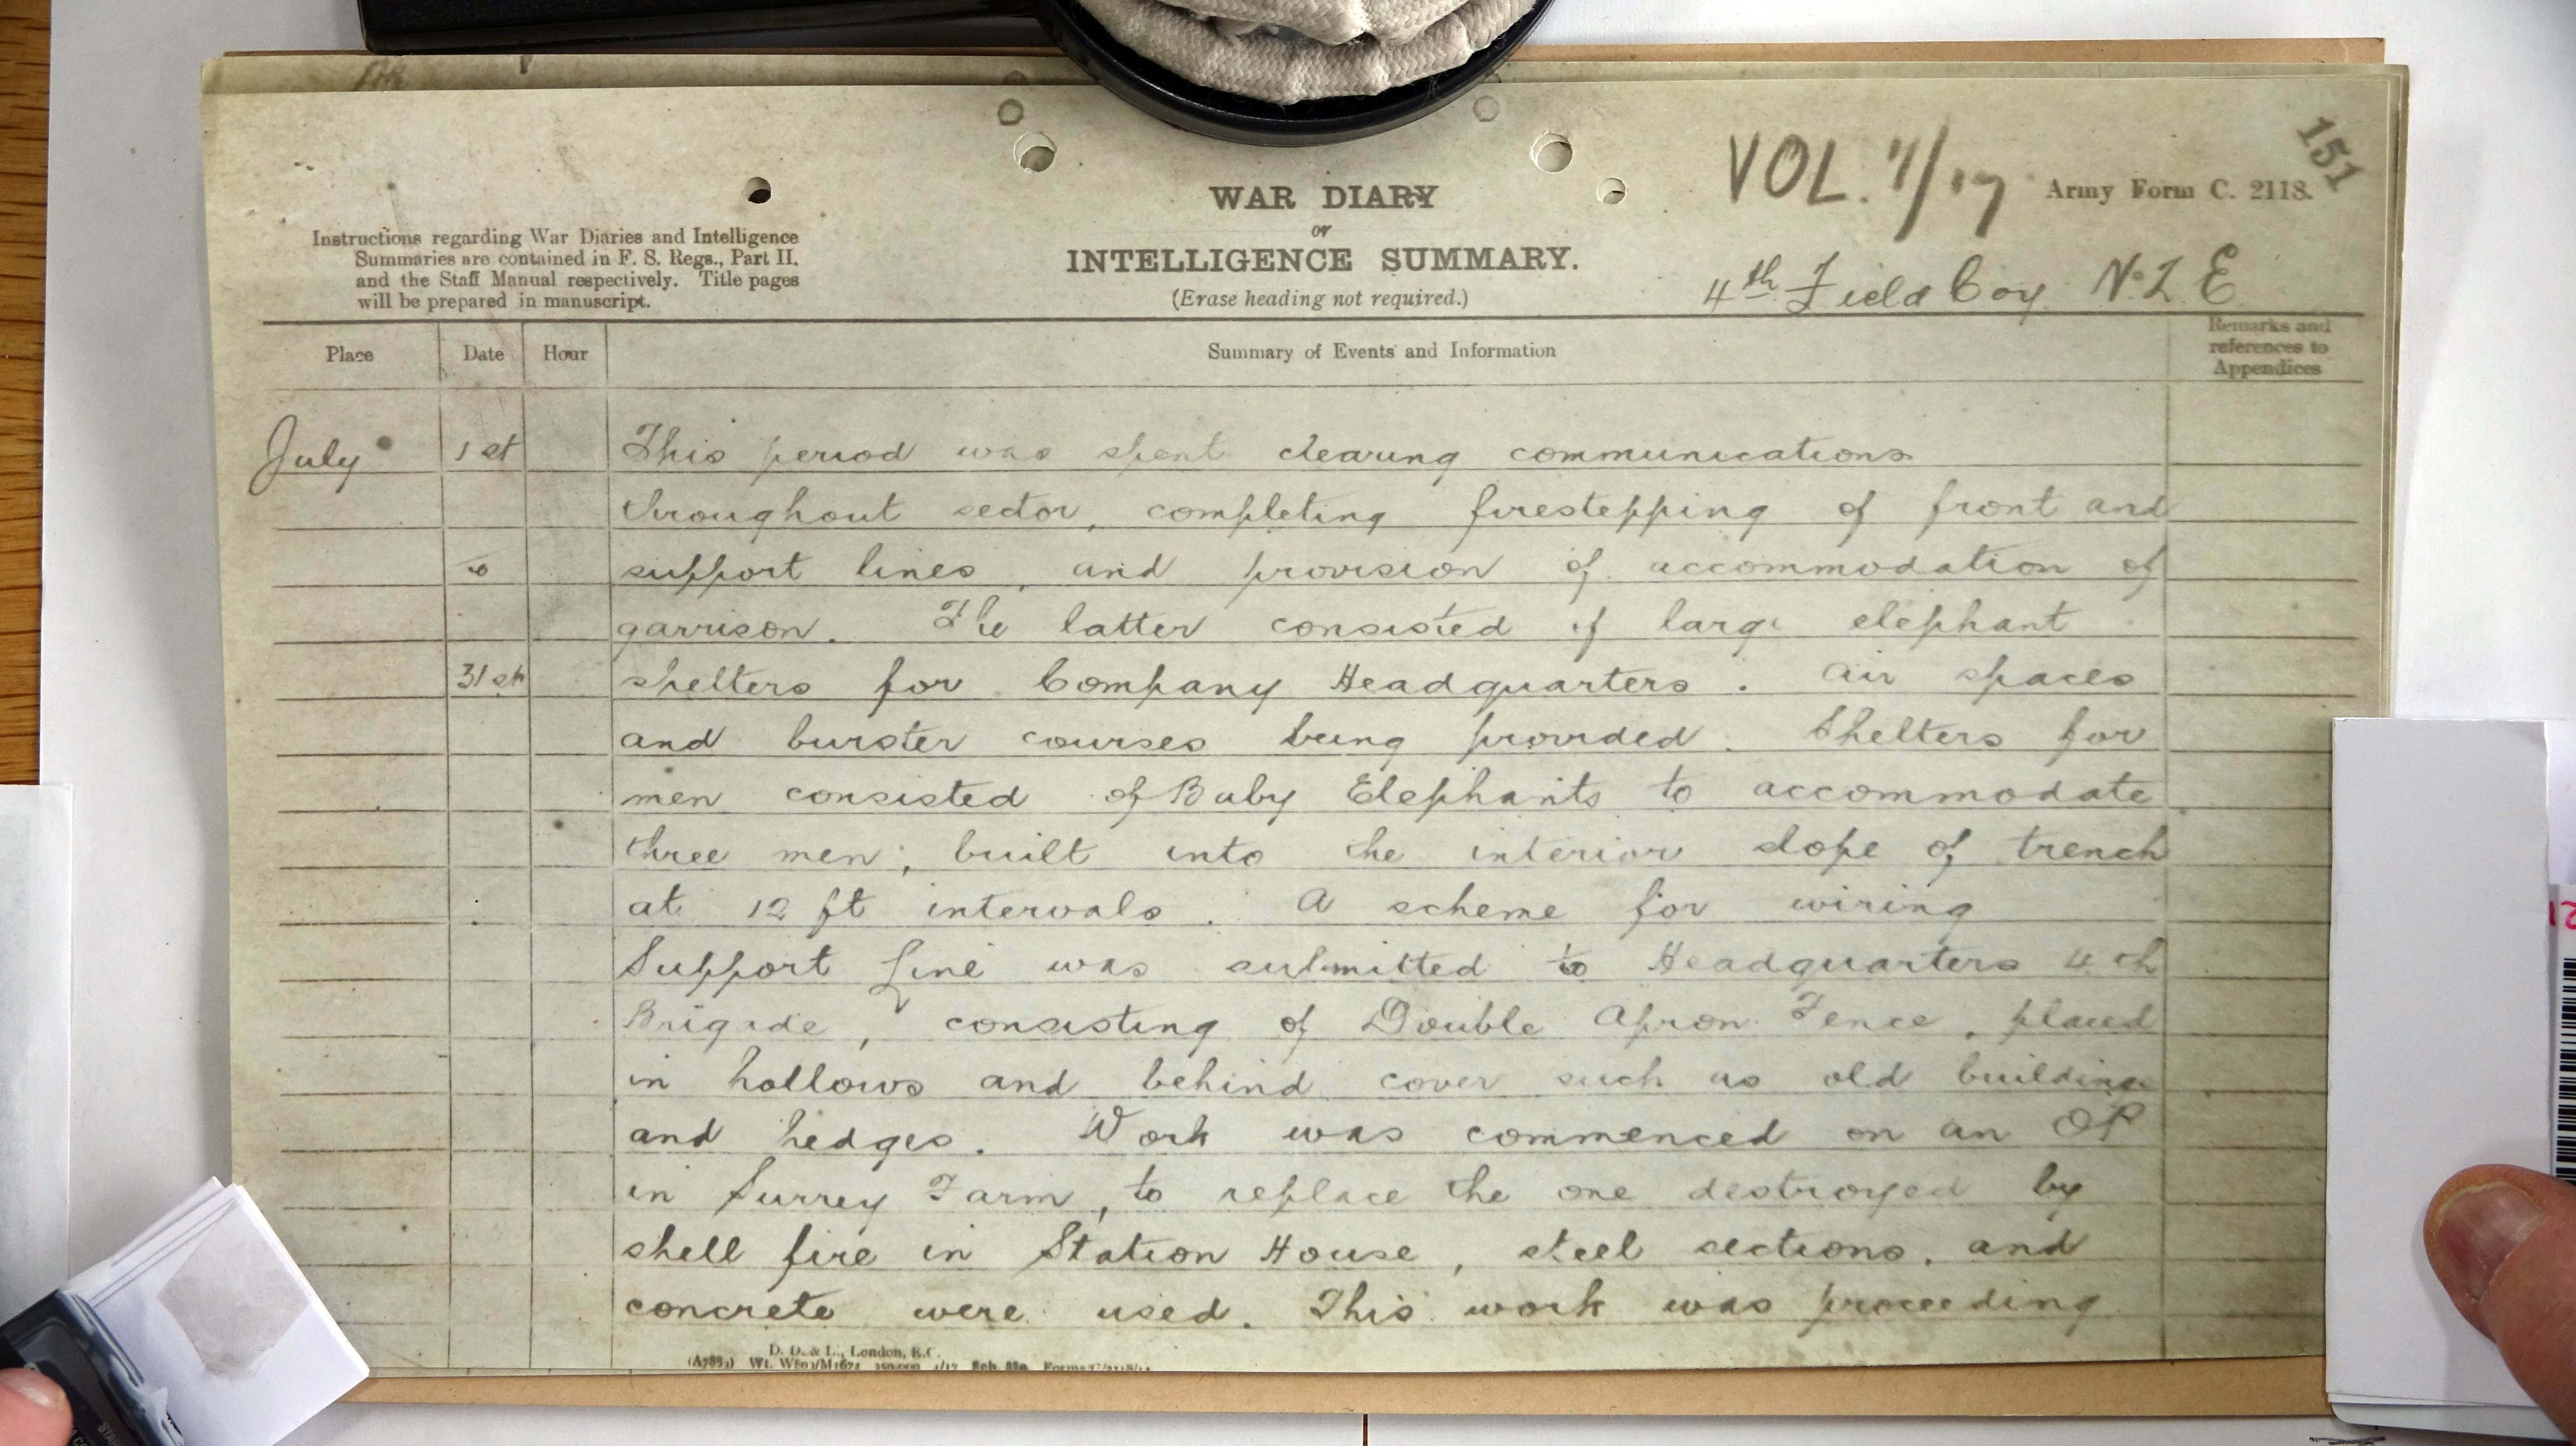 151
VOL. 7/17
Army Form C. 2118.
WAR DIARY
or
INTELLIGENCE SUMMARY.
(Erase heading not required.)
Instructions regarding War Diaries and Intelligence
Summaries are contained in F. S. Regs., Part II.
and the Staff Manual respectively. Title pages
will be prepared in manuscript.
4th Field Coy N.Z.E
Place Date Hour Summary of Events and Information Remarks and references to Appendices
July 1st This period was spent clearing communications
throughout sector, completing firestepping of front and
to support lines, and provision of accommodation of
garrison. The latter consisted of large elephant
31st shelters for Company Headquarters. Air spaces
and burster courses being provided. Shelters for
men consisted of Baby Elephants to accommodate
three men, built into the interior slope of trench
at 12 ft intervals. A scheme for wiring
Support Line was submitted to Headquarters 4th
Brigade, consisting of Double Apron Fence, placed
in hollows and behind cover such as old buildings
and hedges. Work was commenced on an OP
in Surrey Farm, to replace the one destroyed by
shell fire in Station House, steel sections, and
concrete were used. This work was proceeding
D. D. & L., London, E.C.
(A7883) Wt. W809/M1672 350,000 4/17 Sch. 52a